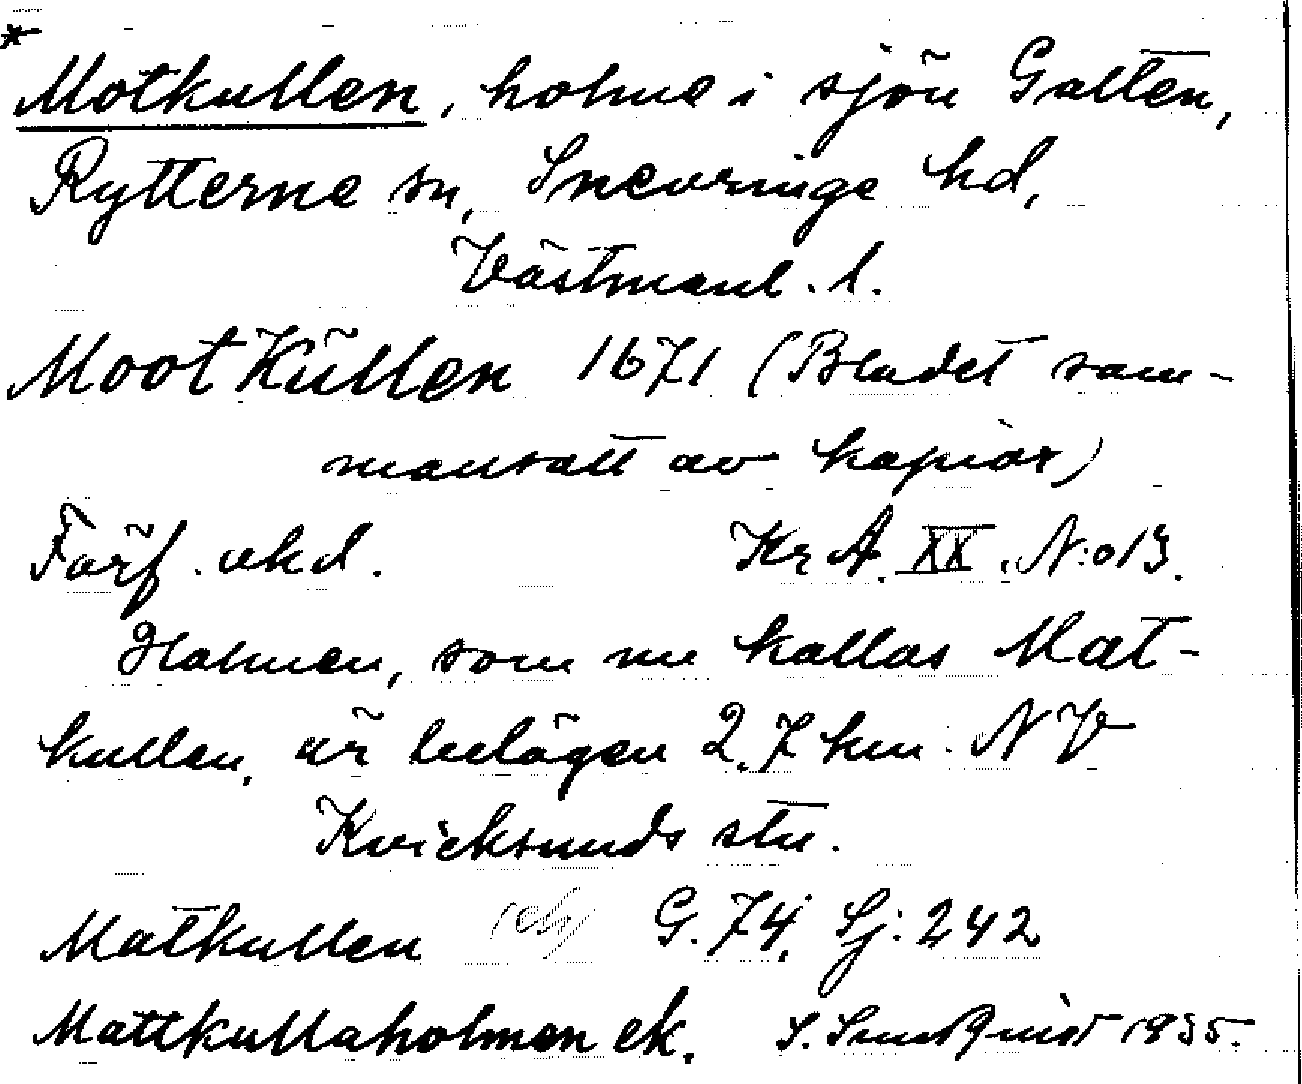 *
Motkullen, holme i sjön Galten,
Rytterne sn, Snevringe hd,
Västmanl. l.
Moot Kullen 1671 (Bladet sam-
mansatt av kopior)
Förf. okd. Kr A. XX. N:o 13.
Holmen, som nu kallas Mat-
kullen, är belägen 2,7 km NV
Kvicksunds stn.
Matkullen (ek) G. 74, Sj: 242
Mattkullaholmen ek. S. Sundquist 1935.